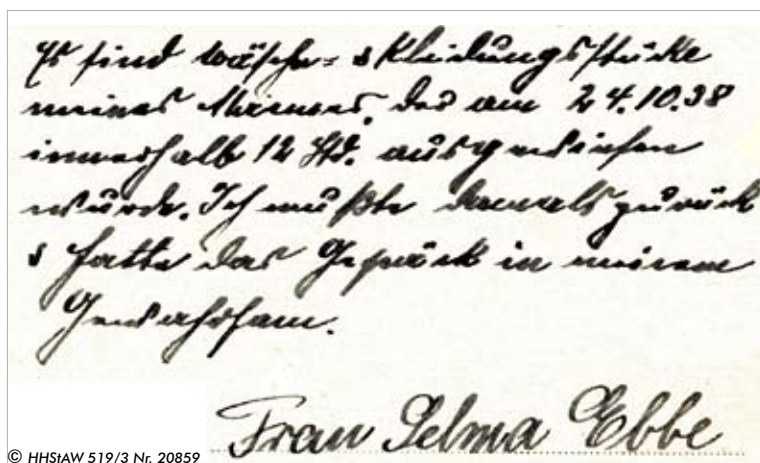 Es sind Wäsche- & Kleidungsstücke
meines Mannes, der am 24.10.38
innerhalb 12 Std. ausgewiesen
wurde. Ich mußte damals zurück
& hatte das Gepäck in meinem
Gewahrsam.
Frau Selma Ebbe
© HHStAW 519/3 Nr. 20859